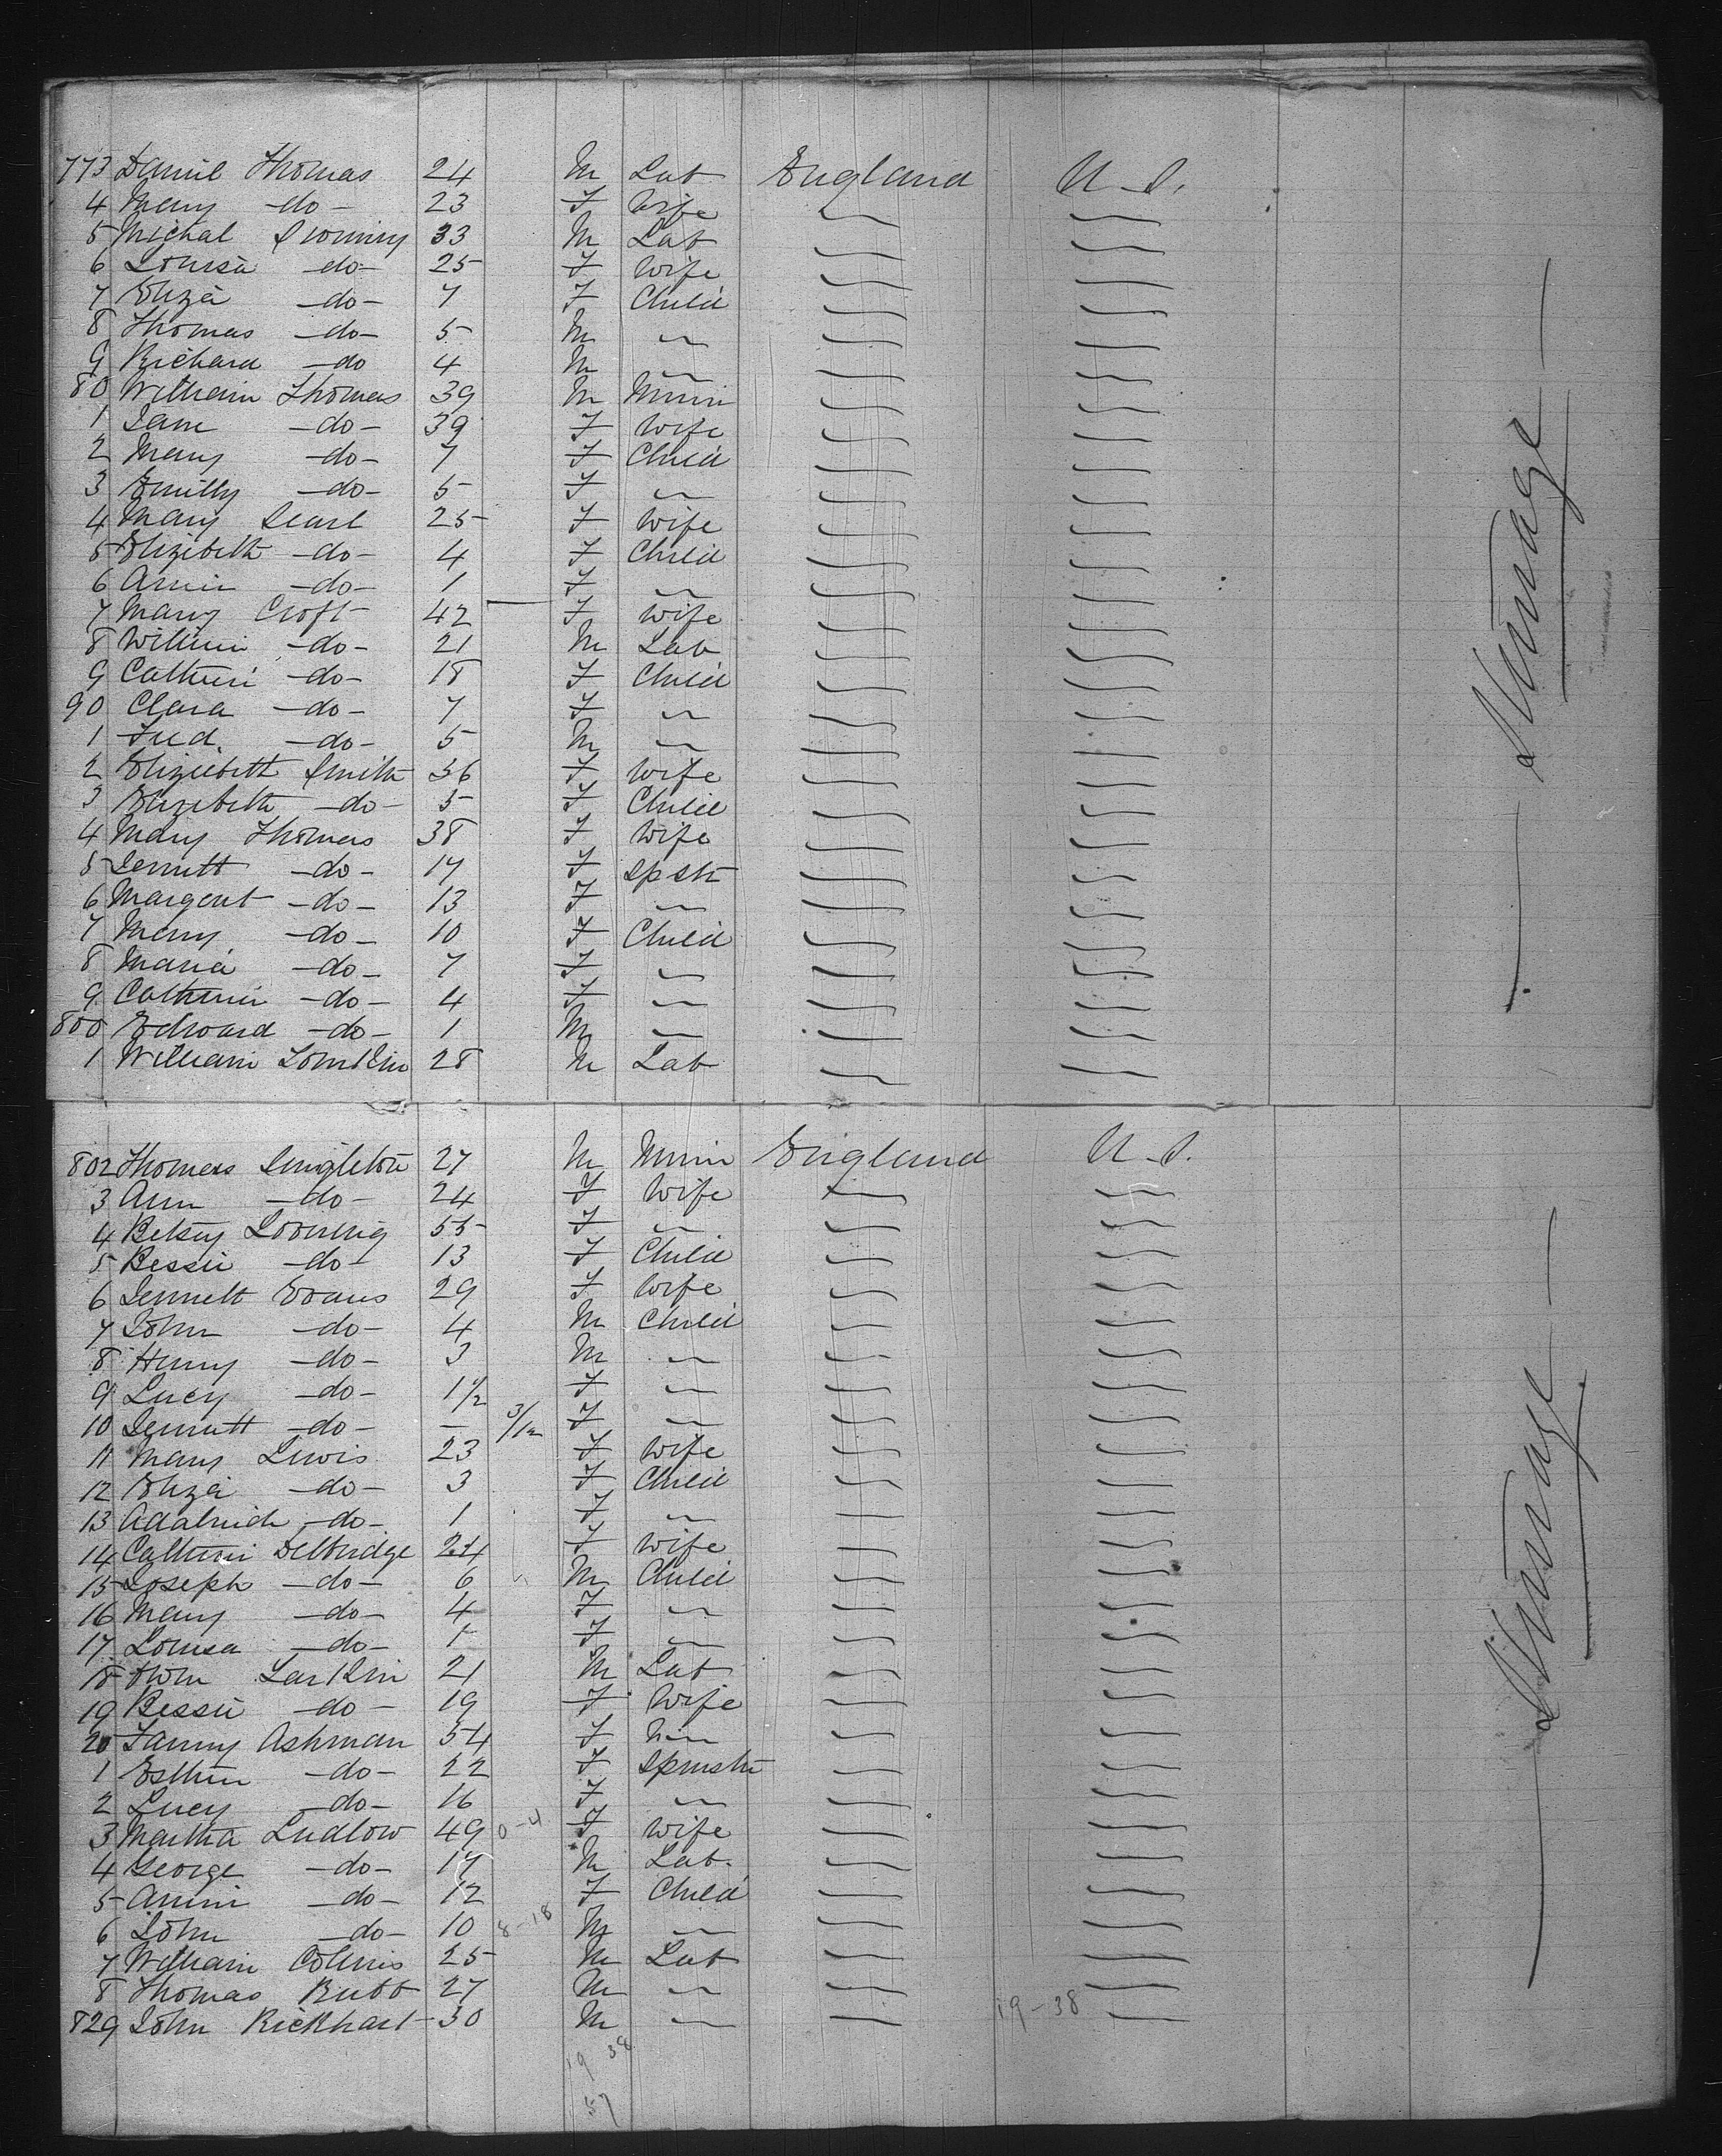 773 Daniel Thomas 24 M Lab England U.S.
4 Mary -do- 23 F Wife
5 Michal 33 M Lab
6 Louisa -do- 25 F Wife
7 Eliza -do- 7 F Child
8 Thomas -do- 5 M "
9 Richard -do 4 M "
80 William Thomas 39 M Minin
1 Jane -do- 39 F Wife
2 Mary -do- 7 F Child
3 Emilly -do- 5 F "
4 Mary Searl 25 F Wife
5 Elizebeth -do- 4 F Child
6 Annie -do- 1 F "
7 Mary Croft 42 F Wife
8 William -do- 21 M Lab
9 Catherine -do- 18 F Child
90 Clara -do- 7 F "
1 Fred. -do- 5 M "
2 Elizebeth Smith 36 F Wife
3 Elizebeth -do- 5 F Child
4 Mary Thomas 38 F Wife
5 Jennett -do- 17 F Spstr
6 Margeret -do- 13 F "
7 Mary -do- 10 F Child
8 Maria -do- 7 F "
9 Catherine -do- 4 F "
800 Edward -do- 1 M "
1 William Tomkin 28 M Lab
- Steerage -
802 Thomas Singleton 27 M Minin England U.S.
3 Ann -do- 24 F Wife
4 Betsy 55 F "
5 Bessie -do- 13 F Child
6 Jennett Evans 29 F Wife
7 John -do- 4 M Child
8 Henry -do- 3 M "
9 Lucy -do- 1 1/2 F "
10 Jennett -do- — 3/12 F "
11 Mary Lewis 23 F Wife
12 Eliza -do- 3 F Child
13 -do- 1 F "
14 Catherine Delbridge 24 F Wife
15 Joseph -do- 6 M Child
16 Mary -do- 4 F "
17 Louisa -do- 1 F "
18 Larkin 21 M Lab
19 Bessie -do- 19 F Wife
20 Fanny Ashman 54 F
1 Esther -do- 22 F Spinstr
2 Lucy -do- 16 F "
3 Martha Ludlow 49 0-4 F Wife
4 George -do- 17 M Lab.
5 Annie -do- 12 F Child
6 John -do- 10 8-18 M "
7 William Collins 25 M Lab
8 Thomas Bubb 27 M "
829 John Rickhart 30 M " 19-38
19 38
57
- Steerage -